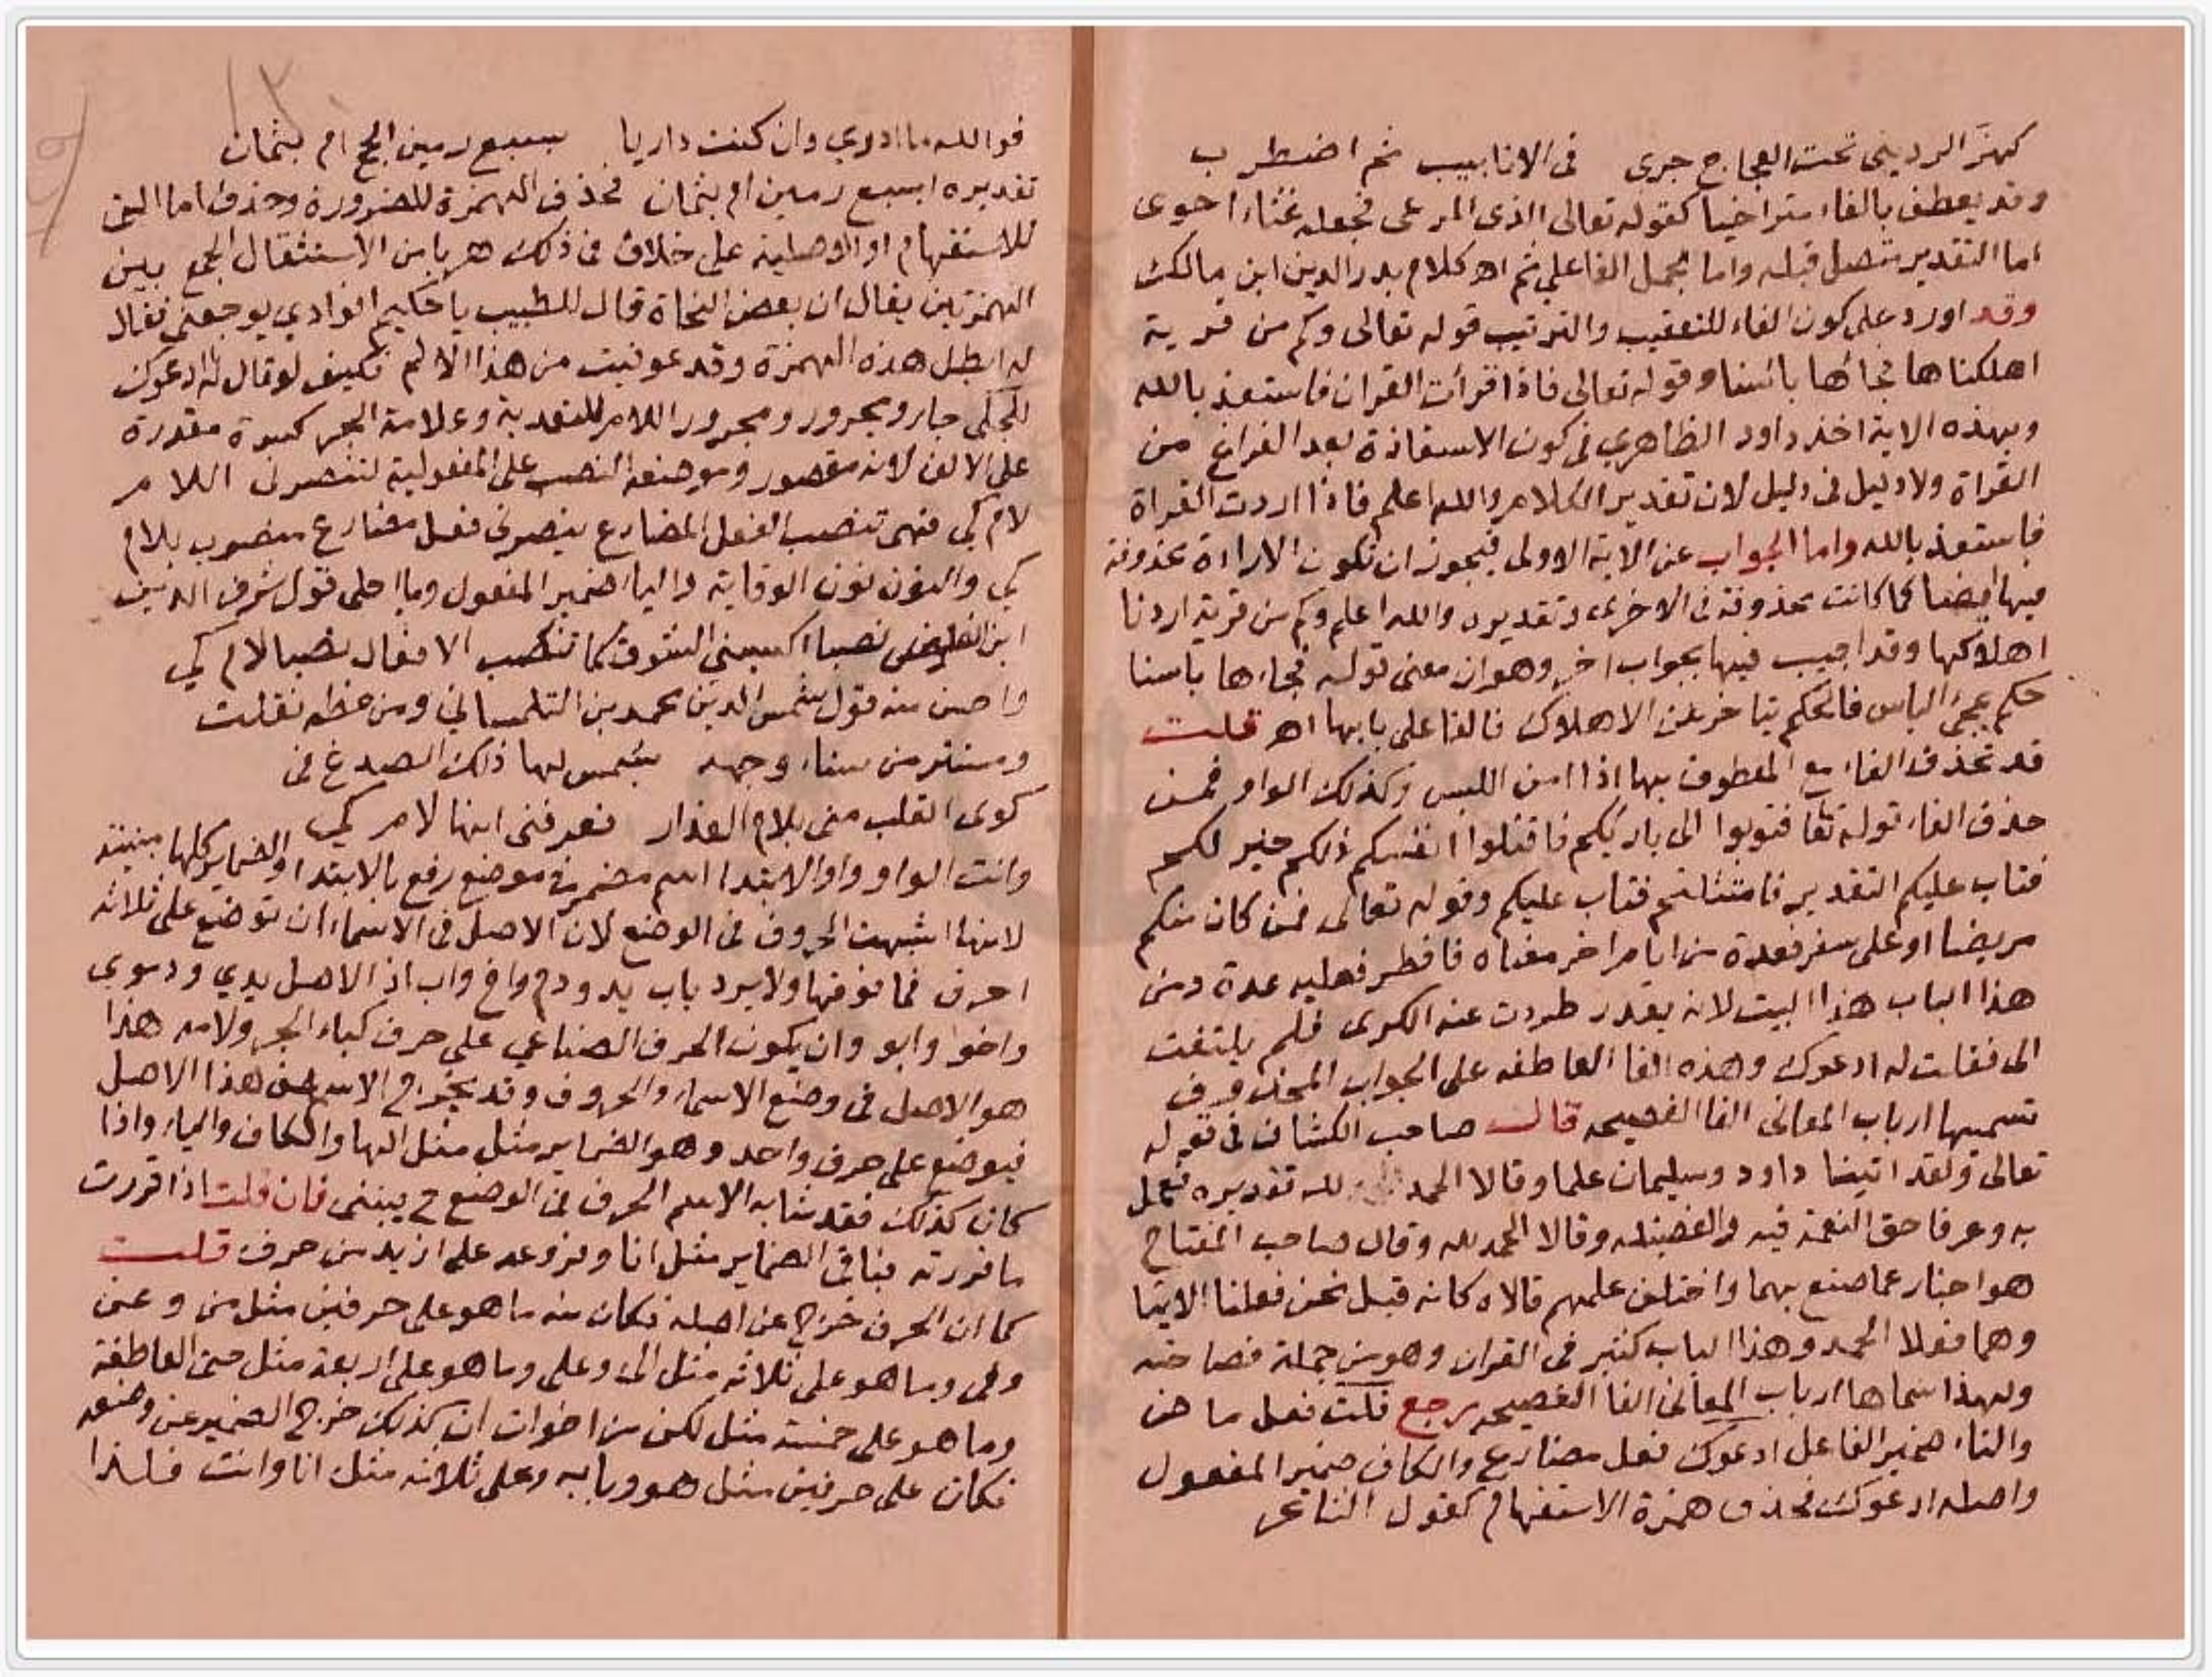 كهزّ الرديني تحت العجاج جرى في الانابيب ثم اضطرب
وقد يعطف بالفاء متراخيا كقوله تعالى الذى المرعى فجعله غثاء احوى
اما التقدير متصل قبله واما بحمل الفا على ثم اهـ كلام بدر الدين ابن مالك
وقد اورد على كون الفاء للتعقيب والترتيب قوله تعالى وكم من قرية
اهلكناها فجائها بائسنا وقوله تعالى فاذا قرأت القران فاستعذ بالله
وبهذه الاية اخذ داود الظاهري في كون الاستعاذة بعد الفراغ من
القراة ولا دليل فى دليل لان تقدير الكلام والله اعلم فاذا اردت القراة
فاستعذ بالله واما الجواب عن الاية الاولى فيجوز ان تكون الارادة محذوفة
فيها ايضا كما كانت محذوفة في الاخرى وتقديره والله اعلم وكم من قرية اردنا
اهلاكها وقد اجيب فيها بجواب اخر وهو ان معنى قوله فجاءها باسنا
حكم بمجئ الباس فالحكم متاخر عن الاهلاك فالفا على بابها اهـ قلت
قد تحذف الفاء مع المعطوف بها اذا امن اللبس وكذلك الواو فمن
حذف الفاء قوله تعا فتوبوا الى باريكم فاقتلوا انفسكم ذلكم خير لكم
فتاب عليكم التقدير فامتثلتم فتاب عليكم وقوله تعالى فمن كان منكم
مريضا او على سفر فعدة من ايام اخر معناه فافطر فعليه عدة ومن
هذا الباب هذا البيت لانه يقدر طردت عنه الكرى فلم يلتفت
الى فقلت له ادعوك وهذه الفا العاطفه على الجواب المحذوف
تسميها ارباب المعانى الفا الفصيحه قال صاحب الكشاف فى قوله
تعالى ولقد اتينا داود وسليمان علما وقالا الحمد لله تقديره فعمل
به وعرفا حق النعمة فيه والفضيله وقالا الحمد لله وقال صاحب المفتاح
هو اخبار عما صنع بهما واختلف علمهم قالاه كانه قيل نحن فعلنا الايتا
وهما فعلا الحمد وهذا الباب كثير فى القران وهو من جملة فصاحته
ولهذا سماها ارباب المعاني الفا الفصيحه رجع قلت فعل ماض
والتاء ضمير الفاعل ادعوك فعل مضارع والكاف ضمير المفعول
واصله اادعوك فحذف همزة الاستفهام كقول الشاعر
فوالله ما ادري وان كنت داريا بسبع رمين الجمرام بثمان
تقديره ابسبع رمين ام بثمان فحذف الهمزة للضرورة وحذف اما التى
للاستفهام او الاصلية على خلاف فى ذلك هربا من الاستثقال الجمع بين
الهمزتين يقال ان بعض النحاة قال للطبيب يا حكيم افوادي يوجعني فقال
له ابطل هذه الهمزة وقد عوفيت من هذا الالم فكيف لو قال أادعوك
للجلى جار ومجرور ومجرور اللام للتعدية وعلامة الجر كسرة مقدرة
على الالف لانه مقصور وموضعه النصب على المفعولية لتنصرنى اللام
لام كي فهى تنصب الفعل المضارع ينصرنى فعل مضارع منصوب بلام
كي والنون نون الوقاية والياء ضمير المفعول وما احلى قول شرف الدين
ابن الفارض نصبا اكسبني الشوق كما تنصب الافعال نصبا لام كي
واحسن منه قول شمس الدين محمد بن التلمساني ومن خطه نقلت
ومستتر من سناء وجهه بشمس لها ذلك الصدغ فى
كوى القلب منى بلام العذار فعرفنى انها لام كي
وانت الواو واو الابتدا اسم مضمر في موضع رفع بالابتدا والضماير كلها مبنية
لانها اشبهت الحروف فى الوضع لان الاصل فى الاسماء ان توضع على ثلاثه
احرف فما فوقها ولا يرد باب يد ودم واخ واب اذ الاصل يدي ودموى
واخو وابو وان يكون الحرف الصناعي على حرف كباء الجر ولامه هذا
هو الاصل فى وضع الاسماء والحروف وقد يخرج الاسم عن هذا الاصل
فيوضع على حرف واحد وهو الضماير مثل مثل الها والكاف والياء واذا
كان كذلك فقد شابه الاسم الحرف فى الوضع ح يبنى فان قلت اذا قررت
ما قررته فباقى الضماير مثل انا ونحوه على ازيد من حرف قلت
كما ان الحرف خرج عن اصله فكان منه ما هو على حرفين مثل من وعن
وفي وما هو على ثلاثه مثل الى وعلى وما هو على اربعة مثل حتى العاطفة
وما هو على خمسة مثل لكن من اخوات ان كذلك خرج الضمير عن وضعه
فكان على حرفين مثل هو وبابه وعلى ثلاثه مثل انا وانت فلهذا